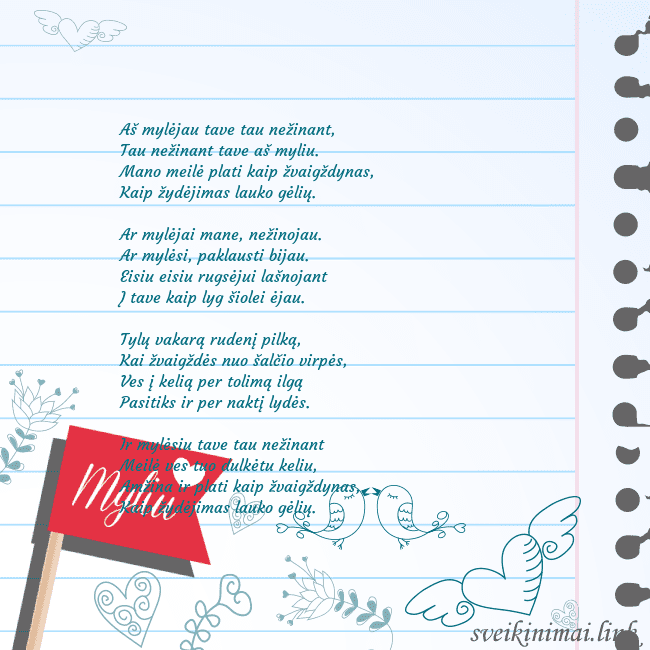 Aš mylėjau tave tau nežinant,
Tau nežinant tave aš myliu.
Mano meilė plati kaip žvaigždynas,
Kaip žydėjimas lauko gėlių.
Ar mylėjai mane, nežinojau.
Ar mylėsi, paklausti bijau.
Eisiu eisiu rugsėjui lašnojant
Į tave kaip lyg šiolei ėjau.
Tylų vakarą rudenį pilką,
Kai žvaigždės nuo šalčio virpės,
Ves į kelią per tolimą ilgą
Pasitiks ir per naktį lydės.
Ir mylėsiu tave tau nežinant
Meilė ves tuo dulkėtu keliu,
Amžina ir plati kaip žvaigždynas
Kaip žydėjimas lauko gėlių.
Myliu
sveikinimai.link